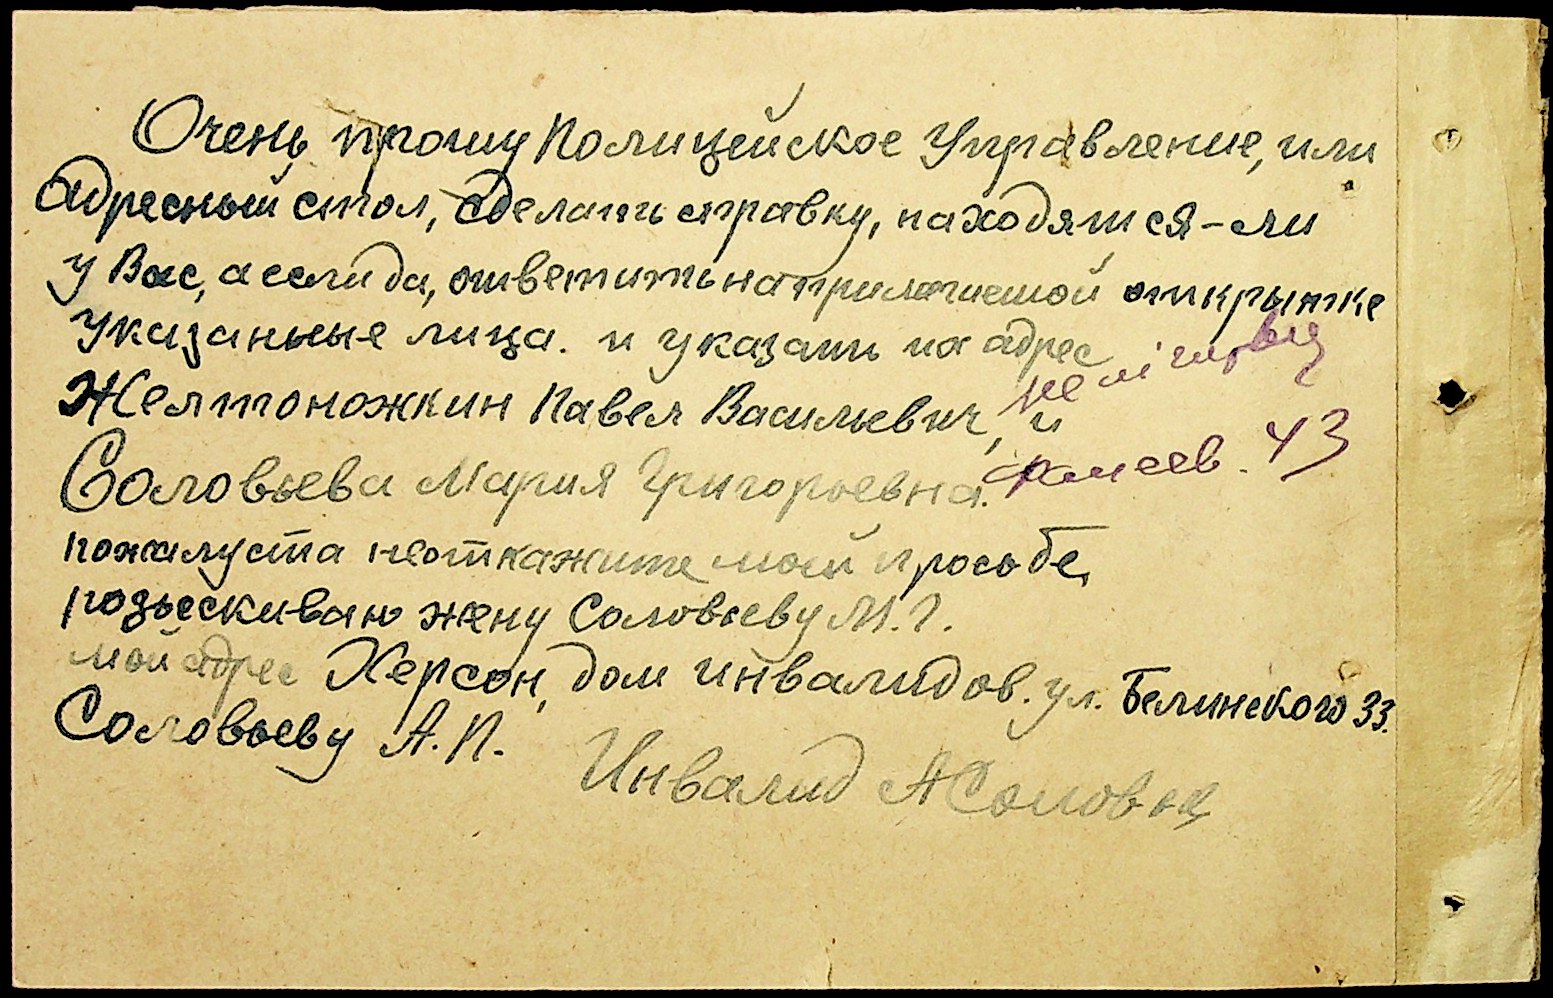 Очень прошу Полицейское Управление, или
адресный стол, сделать справку, находятся-ли
у Вас, а если да, ответить на прилагаемой открытке
указаные лица. и указать их адрес
Желтоножкин Павел Васильевич, и
Соловьева Мария Григорьевна. 43
пожалуста неоткажите моей просьбе,
розыескиваю жену Соловьеву М. Г.
мой адрес Херсон, дом инвалидов. ул. Белинского 33.
Соловьеву А. П.
Инвалид А Соловьев